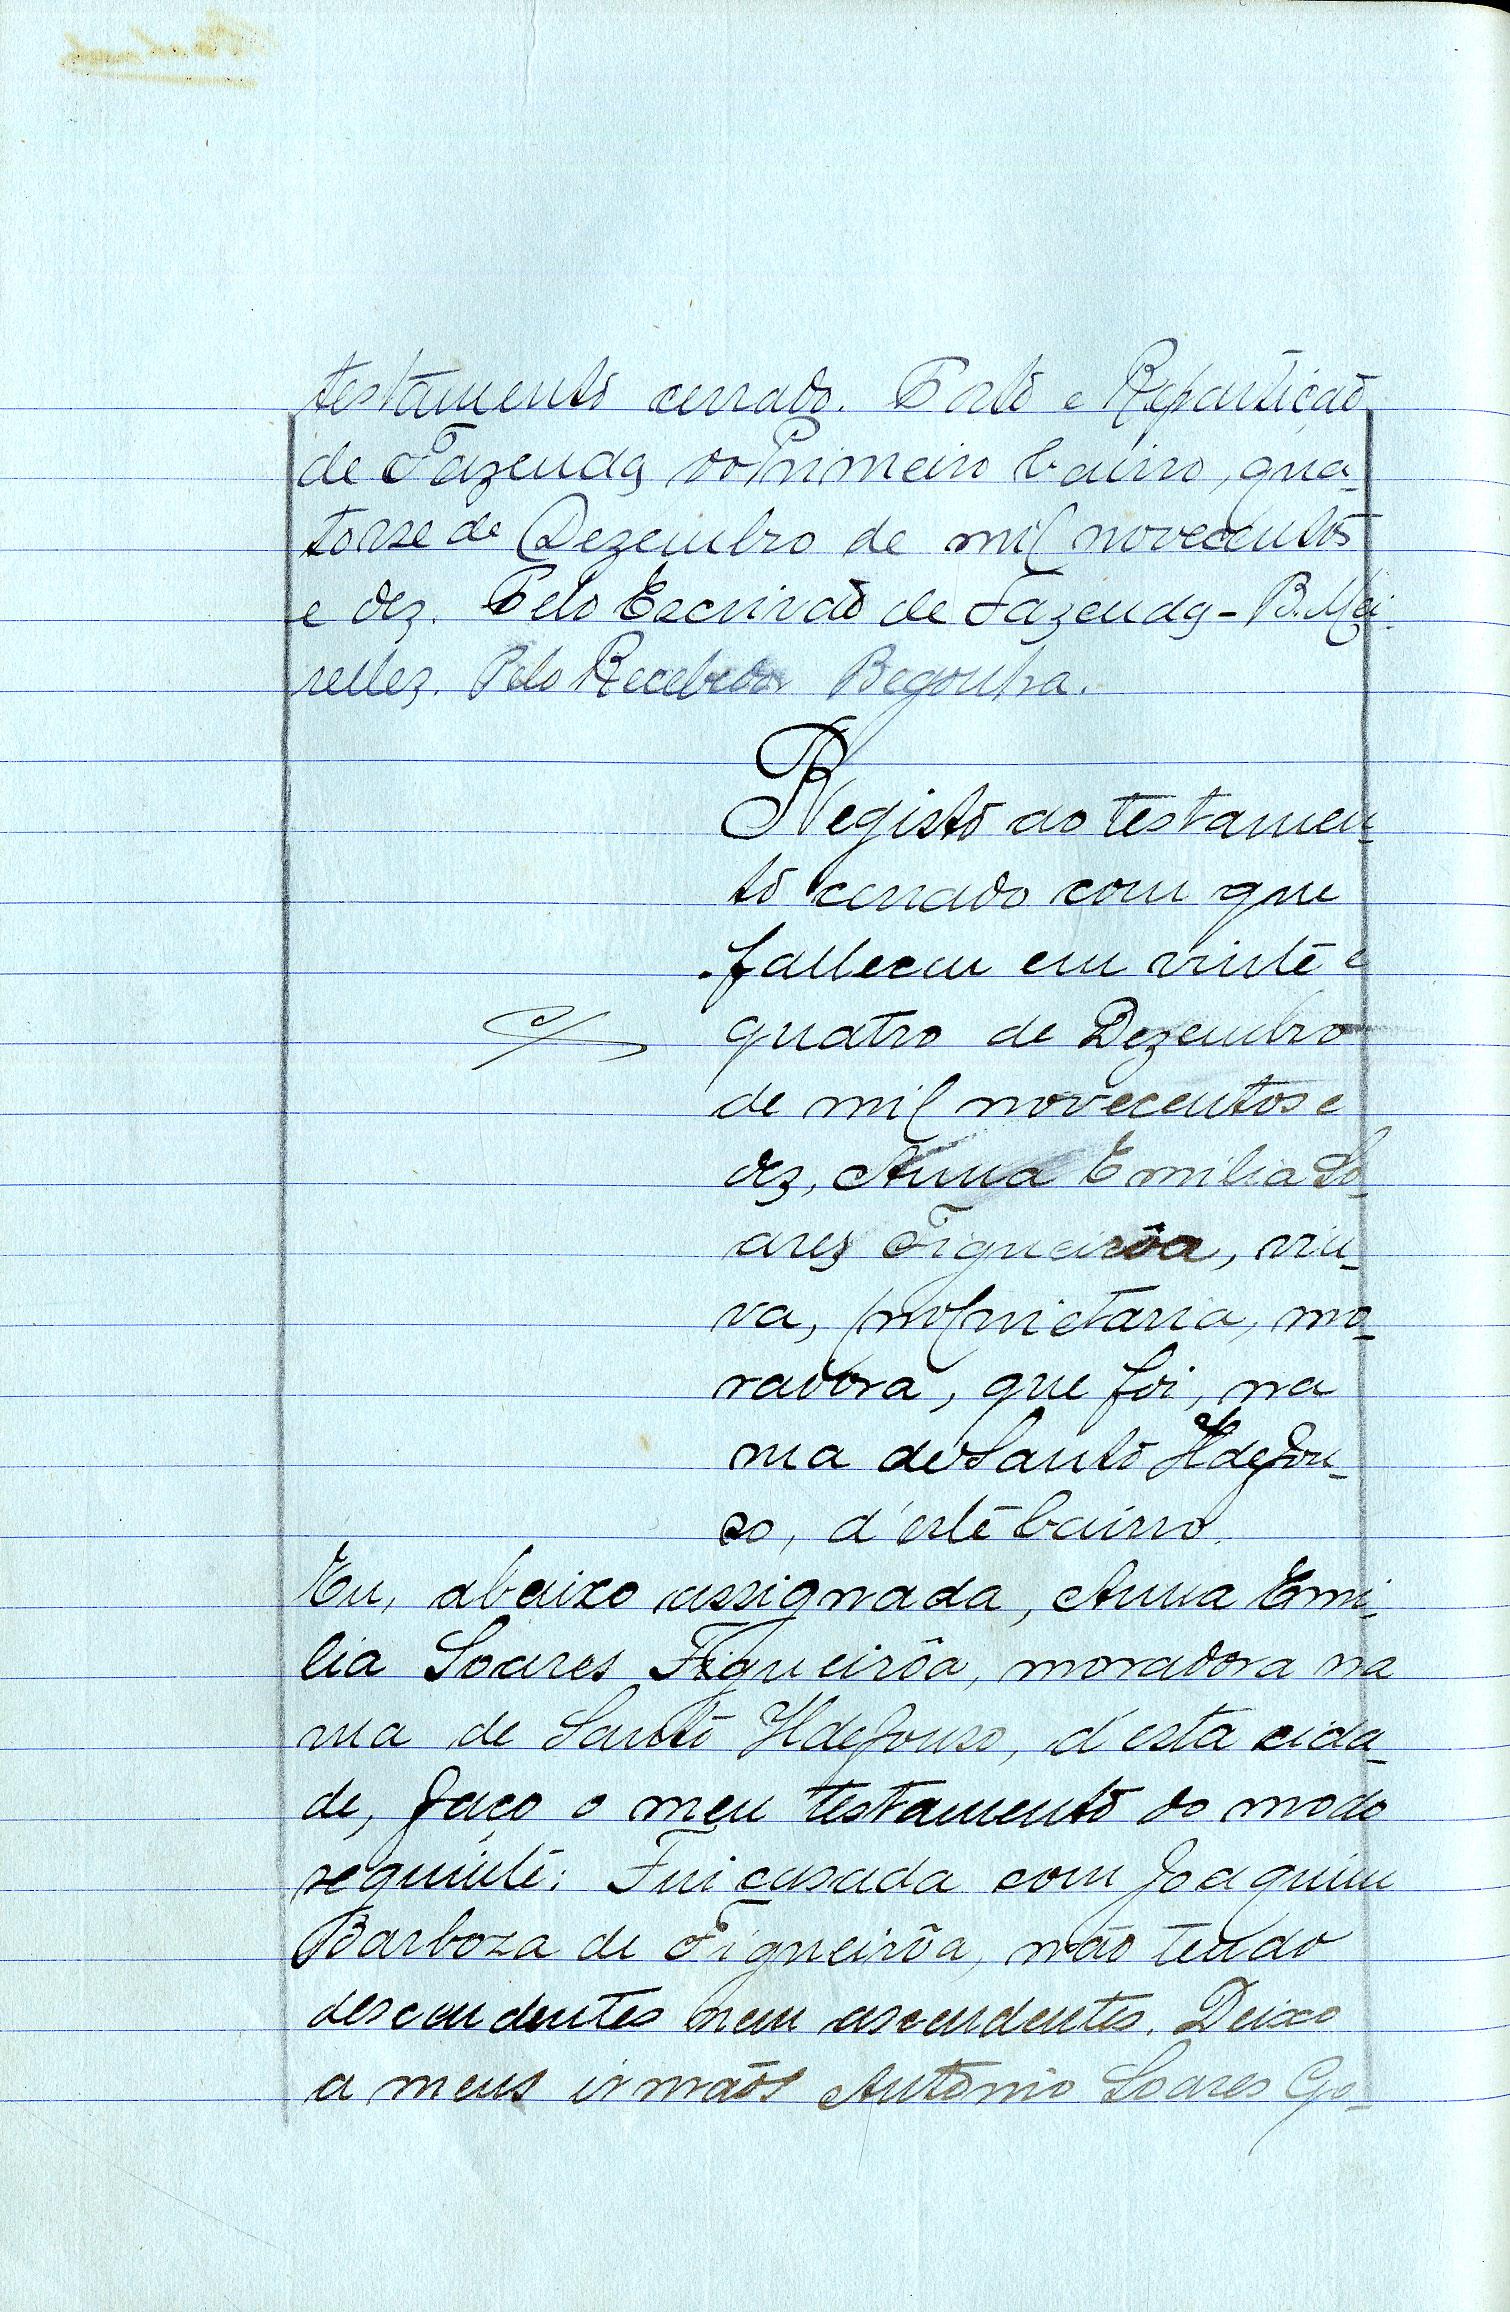 testamento cerrado. Porto e Repartição
de Fazenda do Primeiro bairro, qua-
torze de Dezembro de mil novecentos
e dez. Pelo Escrivão de Fazenda - B. Mei-
relles. Pelo Recebedor Begonha.
Registo do testamen-
to cerrado com que
falleceu em vinte e
quatro de Dezembro
de mil novecentos e
dez, Anna Emilia So-
ares Figueirôa, viu-
va, proprietaria, mo-
radora, que foi, na
rua de Santo Ildefon-
so, d'este bairro.
Eu, abaixo assignada, Anna Emi-
lia Soares Figueirôa, moradora na
rua de Santo Ildefonso, d'esta cida-
de, faço o meu testamento do modo
seguinte: Fui casada com Joaquim
Barboza de Figueirôa, não tendo
descendentes nem ascendentes. Deixo
a meus irmãos Antonio Soares Go-